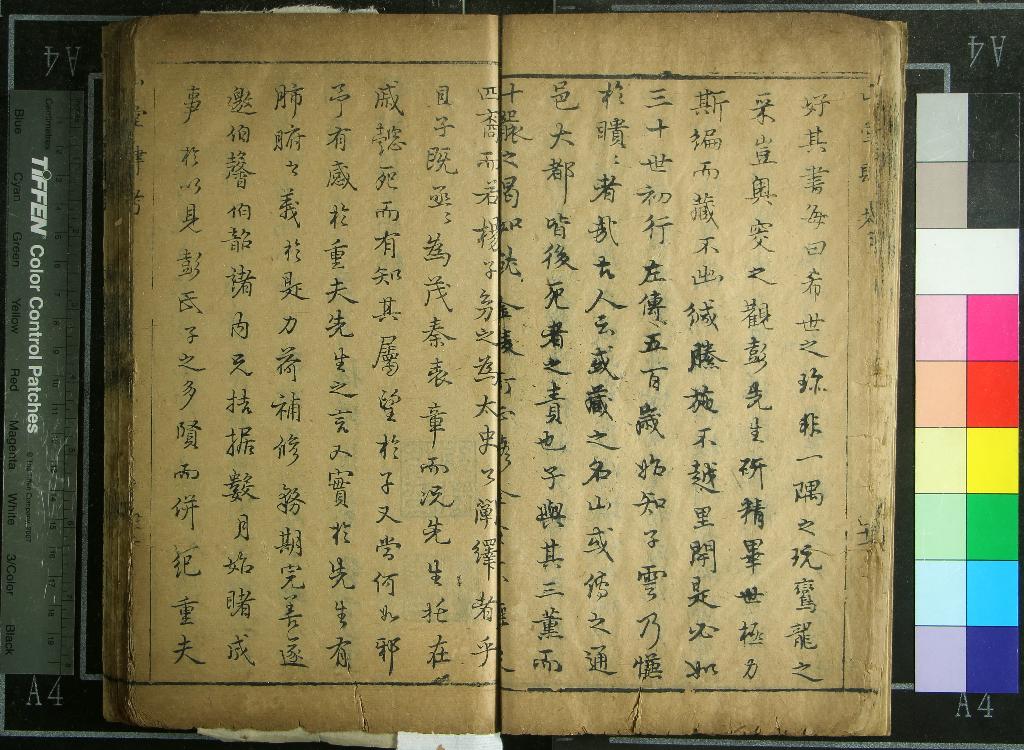 好其書每曰希世之珎非一隅之玩鸞龍之
采豈奧窔之觀彭先生研精畢世極力
斯編而藏不出緘縢施不越里閈是必如
三十世初行左傳五百歲始知子雲乃慊
於瞶瞶者哉古人云或藏之名山或傳之通
邑大都皆後死者之責也子與其三薰而
四裔而若楊子芳之為太史公簞繹者乎
且子既丞丞為茂秦表章而况先生托在
戚懿死而有知其屬望於子又當何如邪
予有感於重夫先生之言又實於先生有
肺腑之義於是力荷補修務期完善遂
邀伯聲伯韶諸內兄拮据數月始睹成
事於以見彭氏子之多賢而併紀重夫
TIFFEN Color Control Patches
Blue Cyan Green Yellow Red Magenta White 3/Color Black
Centimetres
A4
A4
A4
A4